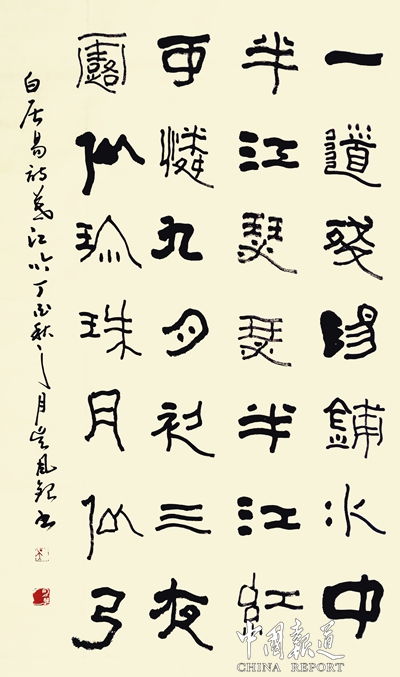 一道殘陽鋪水中
半江瑟瑟半江紅
可憐九月初三夜
露似珍珠月似弓
白居易詩暮江吟丁酉秋 月 風 書
中國報道
CHINA REPORT